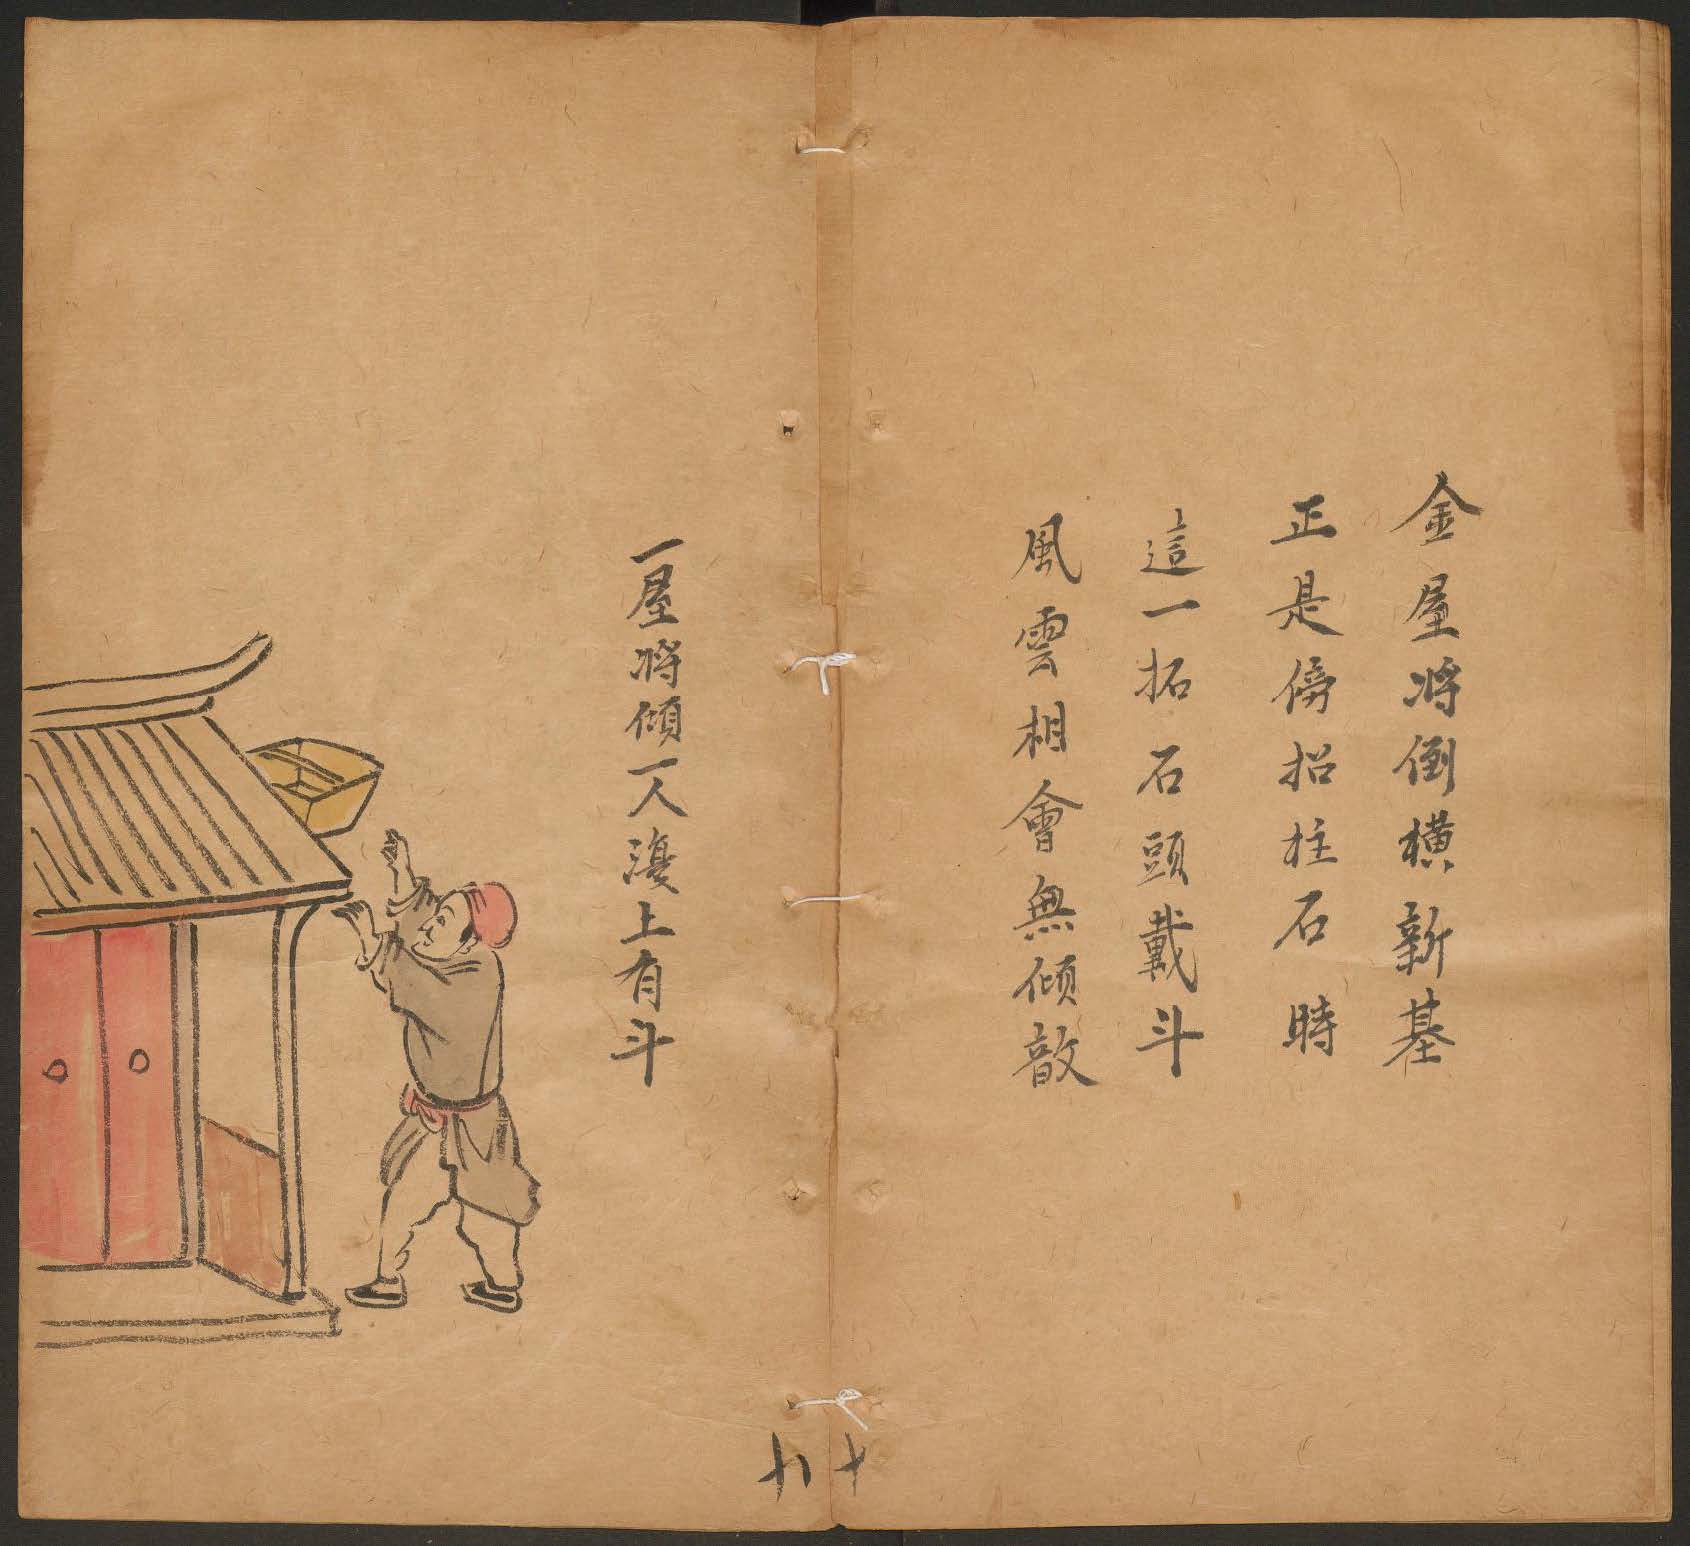 金屋將倒橫新基
正是傍招柱石時
這一拓石頭戴斗
風雲相會無傾敧
一屋將傾一人邊上有斗
十
十八